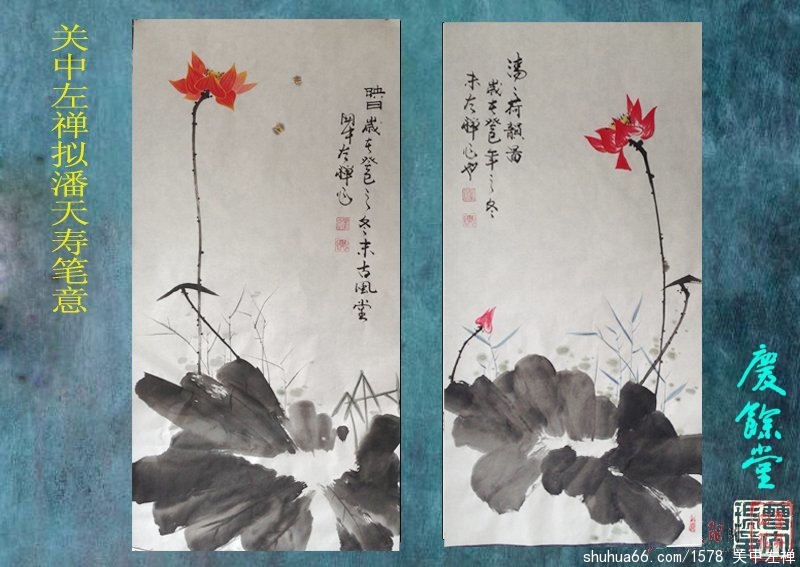 关中左禅拟潘天寿笔意
映日
歲在癸巳之冬末古風堂
關中左禅作
清之荷韻圖
歲在癸巳年之冬
末左禅作也
慶餘堂
shuhua66.com/1578 关中左禅